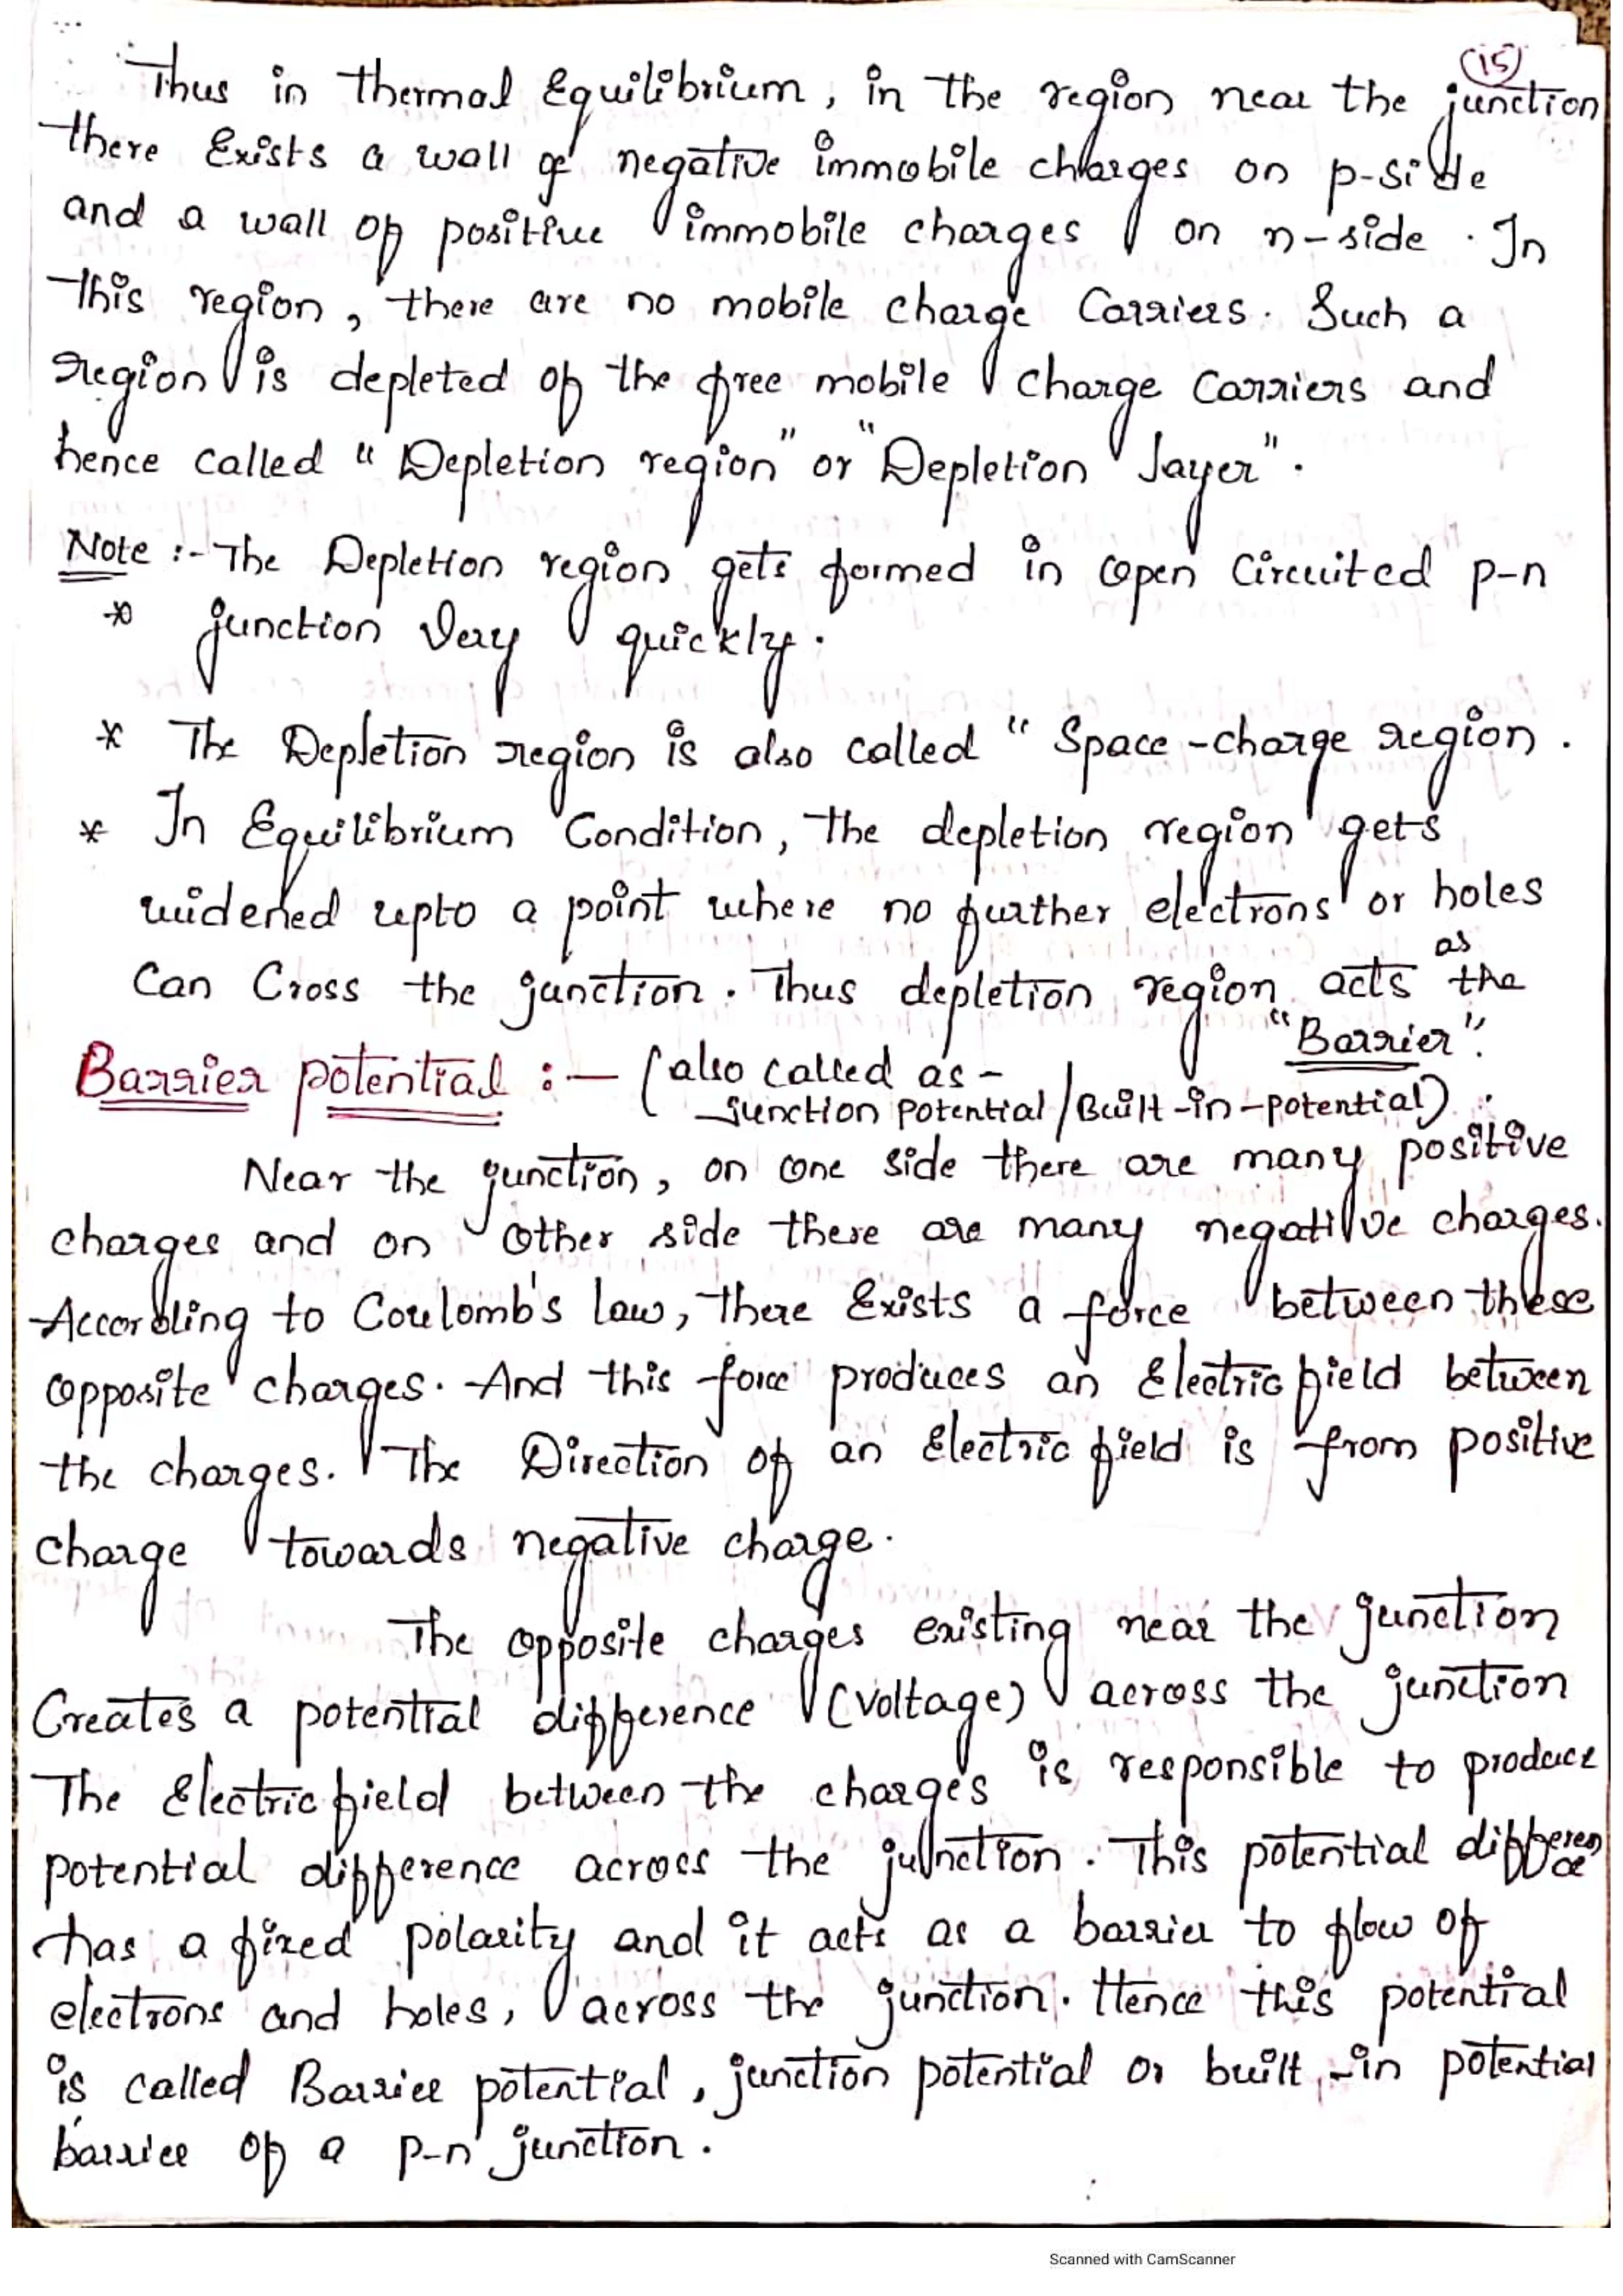 (15)
Thus in thermal Equilibrium, in the region near the junction
there Exists a wall of negative immobile charges on p-side
and a wall of positive immobile charges on n-side. In
this region, there are no mobile charge Carriers. Such a
region is depleted of the free mobile charge Carriers and
hence called "Depletion region" or "Depletion layer".
Note :- The Depletion region gets formed in open Circuited p-n
* junction Very quickly.
* The Depletion region is also called "Space-charge region.
* In Equilibrium Condition, the depletion region gets
widened upto a point where no further electrons or holes
Can Cross the junction. Thus depletion region acts as the
"Barrier".
Barrier potential :- (also called as -
Junction potential/Built-in-potential).
Near the junction, on one side there are many positive
charges and on other side there are many negative charges.
According to Coulomb's law, there Exists a force between these
opposite charges. And this force produces an Electric field between
the charges. The Direction of an Electric field is from positive
charge towards negative charge.
The opposite charges existing near the junction
Creates a potential difference (voltage) across the junction
The Electric field between the charges is responsible to produce
potential difference across the junction. This potential difference
has a fixed polarity and it acts as a barrier to flow of
electrons and holes, across the junction. Hence this potential
is called Barrier potential, junction potential or built-in potential
barrier of a p-n junction.
Scanned with CamScanner